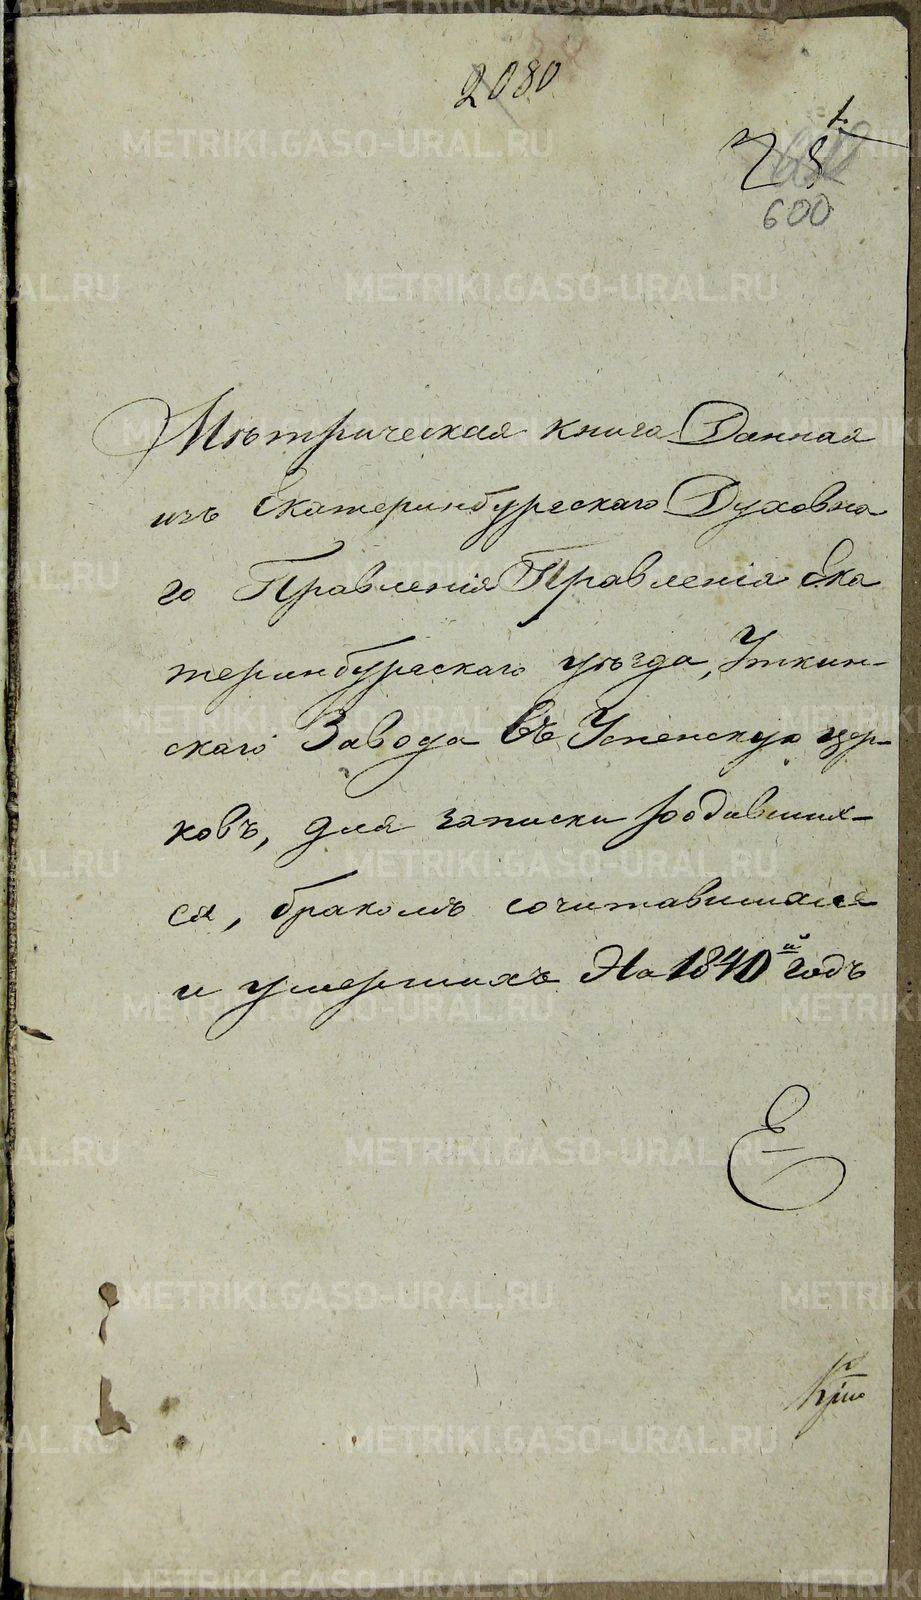 2080
1.
78
600
Мѣтрическая книга Данная
изъ Екатеринбургскаго Духовна
го Правленія Правленія Ека
теринбургскаго уѣзда, Уткин-
скаго Завода въ Успенскую цер-
ковь, для записки родивших-
ся, бракомъ сочитавшихся
и умершихъ На 1840й годъ
Е